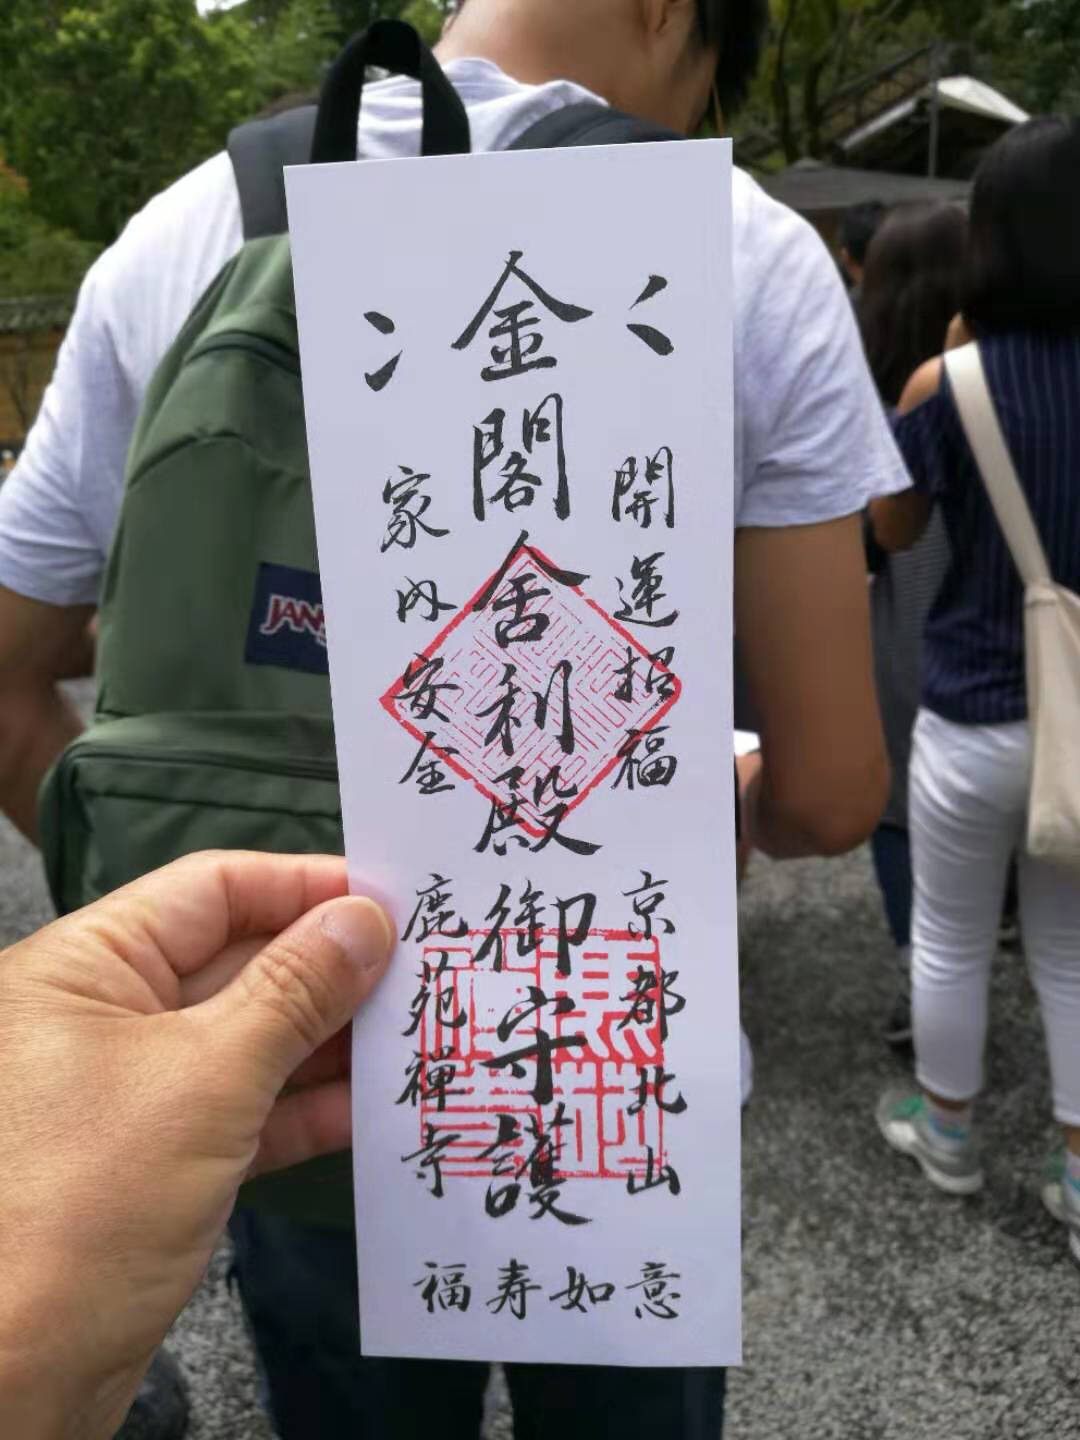 金閣舎利殿御守護
開運招福
家内安全
京都北山
鹿苑禅寺
福寿如意
JANS